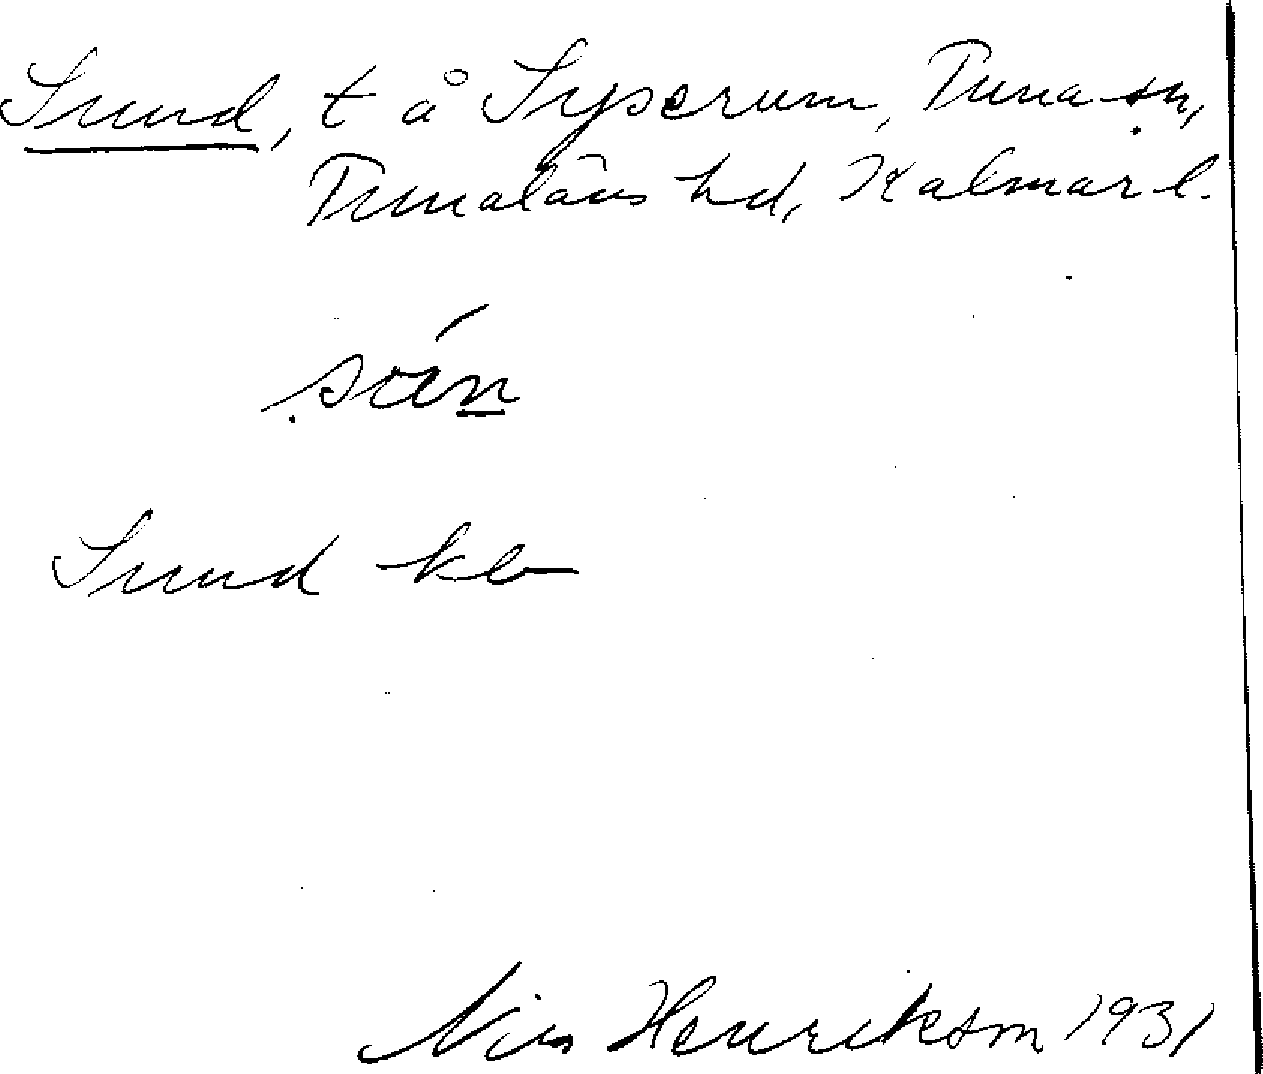 Sund, t å Syserum, Tuna sn,
Tunaläns hd, Kalmar l.
Sund kb
Nils Henrikson 1931